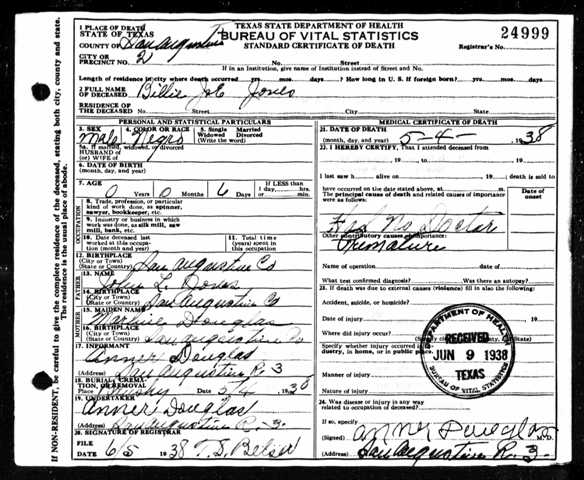 TEXAS STATE DEPARTMENT OF HEALTH
BUREAU OF VITAL STATISTICS
STANDARD CERTIFICATE OF DEATH
24999
Registrar's No.
1 PLACE OF DEATH
STATE OF TEXAS
COUNTY OF San Augustine
CITY OR
PRECINCT NO. 2 No. Street
If in an Institution, give name of Institution instead of Street and No.
Length of residence in city where death occurred yrs. mos. days. ? How long in U. S. if foreign born? yrs. mos. days
2 FULL NAME
OF DECEASED Billie Joe Jones
RESIDENCE OF
THE DECEASED No. Street City State
PERSONAL AND STATISTICAL PARTICULARS
3. SEX 4. COLOR OR RACE 5. Single Married
Widowed Divorced
(Write the word)
Male Negro
5a. If married, widowed, or divorced
HUSBAND of
(or) WIFE of
6. DATE OF BIRTH
(month, day, and year)
7. AGE If LESS than
0 Years 0 Months 6 Days 1 day, hrs.
or min.
OCCUPATION
8. Trade, profession, or particular
kind of work done, as spinner,
sawyer, bookkeeper, etc.
9. Industry or business in which
work was done, as silk mill, saw
mill, bank, etc.
10. Date deceased last
worked at this occupation
(month and year)
11. Total time
(years) spent in
this occupation
12. BIRTHPLACE
(City or Town)
(State or Country) San Augustine Co
FATHER
13. NAME
John L. Jones
14. BIRTHPLACE
(City or Town)
(State or Country) San Augustine Co
MOTHER
15. MAIDEN NAME
Douglas
16. BIRTHPLACE
(City or Town)
(State or Country) San Augustine Co
17 INFORMANT
Anner Douglas
(Address) San Augustine R. 3
18 BURIAL, CREMATION, OR REMOVAL
Place Date 5/4 1938
19. UNDERTAKER
Anner Douglas
(Address) San Augustine R. 3.
20. SIGNATURE OF REGISTRAR
FILE
6/5 1938 T. S. Belser
MEDICAL CERTIFICATE OF DEATH
21. DATE OF DEATH
(month, day, and year) 5-4- 1938
22. I HEREBY CERTIFY, That I attended deceased from
19 to 19
I last saw h alive on 19 death is said to
have occurred on the date stated above, at m.
The principal cause of death and related causes of importance
were as follows:
Date of
onset
No Doctor
Other contributory causes of importance:
Premature
Name of operation date of
What test confirmed diagnosis? Was there an autopsy?
23. If death was due to external causes (violence) fill in also the following:
Accident, suicide, or homicide?
Date of injury 19
Where did injury occur?
Specify whether injury occurred in industry, in home, or in public place
Manner of injury
Nature of injury
24. Was disease or injury in any way
related to occupation of deceased?
If so, specify
(Signed) Anner Douglas M.D.
(Address) San Augustine R. 3.
DEPARTMENT OF HEALTH
RECEIVED
JUN 9 1938
TEXAS
BUREAU OF VITAL STATISTICS
If NON-RESIDENT, be careful to give the complete residence of the deceased, stating both city, county and state.
The residence is the usual place of abode.